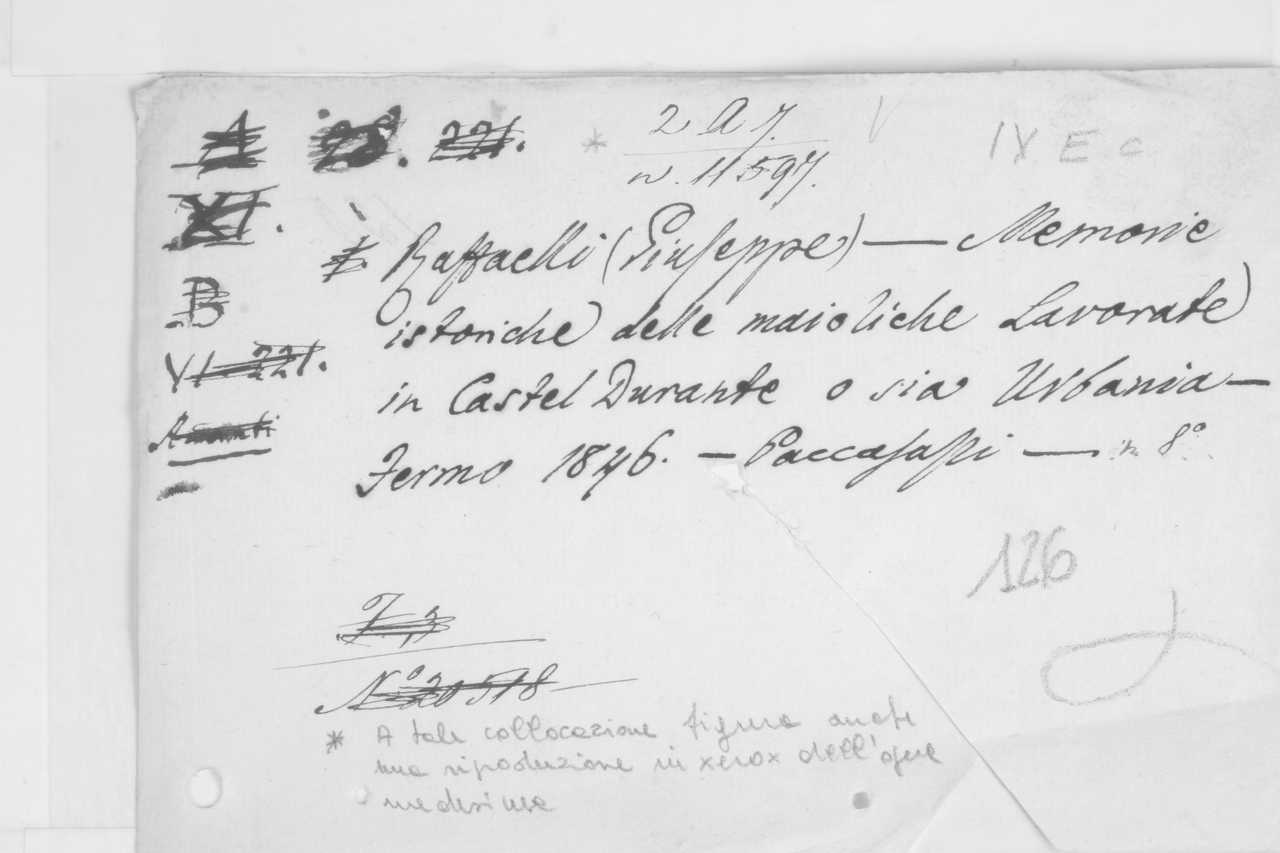 A 28. 221. * 2 A 7. IX E c
n. 11597.
XI.
* Raffaelli (Giuseppe) — Memorie
B istoriche delle maioliche Lavorate
VI 221. in Castel Durante o sia Urbania —
Fermo 1846. — Paccasassi — in 8.°
126
N.° 20518
* A tale collocazione figura anche
una riproduzione in xerox dell'opera
medesima